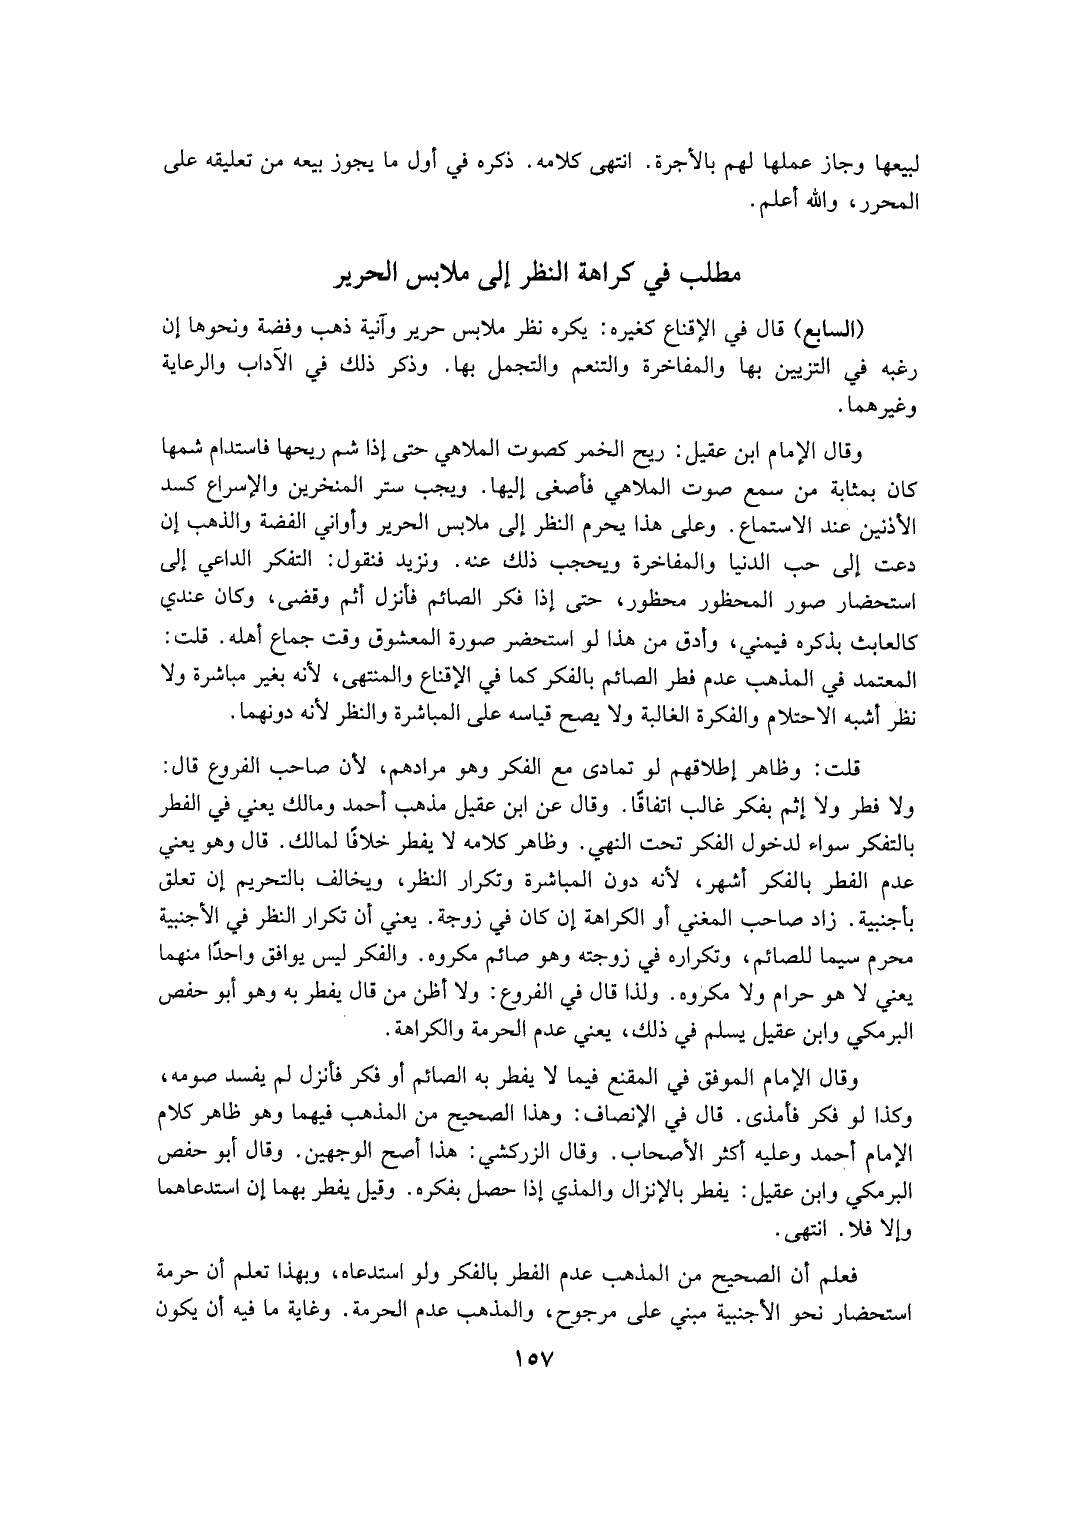 لبيعها وجاز عملها لهم بالأجرة. انتهى كلامه. ذكره في أول ما يجوز بيعه من تعليقه على
المحرر، والله أعلم.
مطلب في كراهة النظر إلى ملابس الحرير
(السابع) قال في الإقناع كغيره: يكره نظر ملابس حرير وآنية ذهب وفضة ونحوها إن
رغبه في التزيين بها والمفاخرة والتنعم والتجمل بها. وذكر ذلك في الآداب والرعاية
وغيرهما.
وقال الإمام ابن عقيل: ريح الخمر كصوت الملاهي حتى إذا شم ريحها فاستدام شمها
كان بمثابة من سمع صوت الملاهي فأصغى إليها. ويجب ستر المنخرين والإسراع كسد
الأذنين عند الاستماع. وعلى هذا يحرم النظر إلى ملابس الحرير وأواني الفضة والذهب إن
دعت إلى حب الدنيا والمفاخرة ويحجب ذلك عنه. ونزيد فنقول: التفكر الداعي إلى
استحضار صور المحظور محظور، حتى إذا فكر الصائم فأنزل أثم وقضى، وكان عندي
كالعابث بذكره فيمني، وأدق من هذا لو استحضر صورة المعشوق وقت جماع أهله. قلت:
المعتمد في المذهب عدم فطر الصائم بالفكر كما في الإقناع والمنتهى، لأنه بغير مباشرة ولا
نظر أشبه الاحتلام والفكرة الغالبة ولا يصح قياسه على المباشرة والنظر لأنه دونهما.
قلت: وظاهر إطلاقهم لو تمادى مع الفكر وهو مرادهم، لأن صاحب الفروع قال:
ولا فطر ولا إثم بفكر غالب اتفاقًا. وقال عن ابن عقيل مذهب أحمد ومالك يعني في الفطر
بالتفكر سواء لدخول الفكر تحت النهي. وظاهر كلامه لا يفطر خلافًا لمالك. قال وهو يعني
عدم الفطر بالفكر أشهر، لأنه دون المباشرة وتكرار النظر، ويخالف بالتحريم إن تعلق
بأجنبية. زاد صاحب المغني أو الكراهة إن كان في زوجة. يعني أن تكرار النظر في الأجنبية
محرم سيما للصائم، وتكراره في زوجته وهو صائم مكروه. والفكر ليس يوافق واحدًا منهما
يعني لا هو حرام ولا مكروه. ولذا قال في الفروع: ولا أظن من قال يفطر به وهو أبو حفص
البرمكي وابن عقيل يسلم في ذلك، يعني عدم الحرمة والكراهة.
وقال الإمام الموفق في المقنع فيما لا يفطر به الصائم أو فكر فأنزل لم يفسد صومه،
وكذا لو فكر فأمذى. قال في الإنصاف: وهذا الصحيح من المذهب فيهما وهو ظاهر كلام
الإمام أحمد وعليه أكثر الأصحاب. وقال الزركشي: هذا أصح الوجهين. وقال أبو حفص
البرمكي وابن عقيل: يفطر بالإنزال والمذي إذا حصل بفكره. وقيل يفطر بهما إن استدعاهما
وإلا فلا. انتهى.
فعلم أن الصحيح من المذهب عدم الفطر بالفكر ولو استدعاه، وبهذا تعلم أن حرمة
استحضار نحو الأجنبية مبني على مرجوح، والمذهب عدم الحرمة. وغاية ما فيه أن يكون
١٥٧